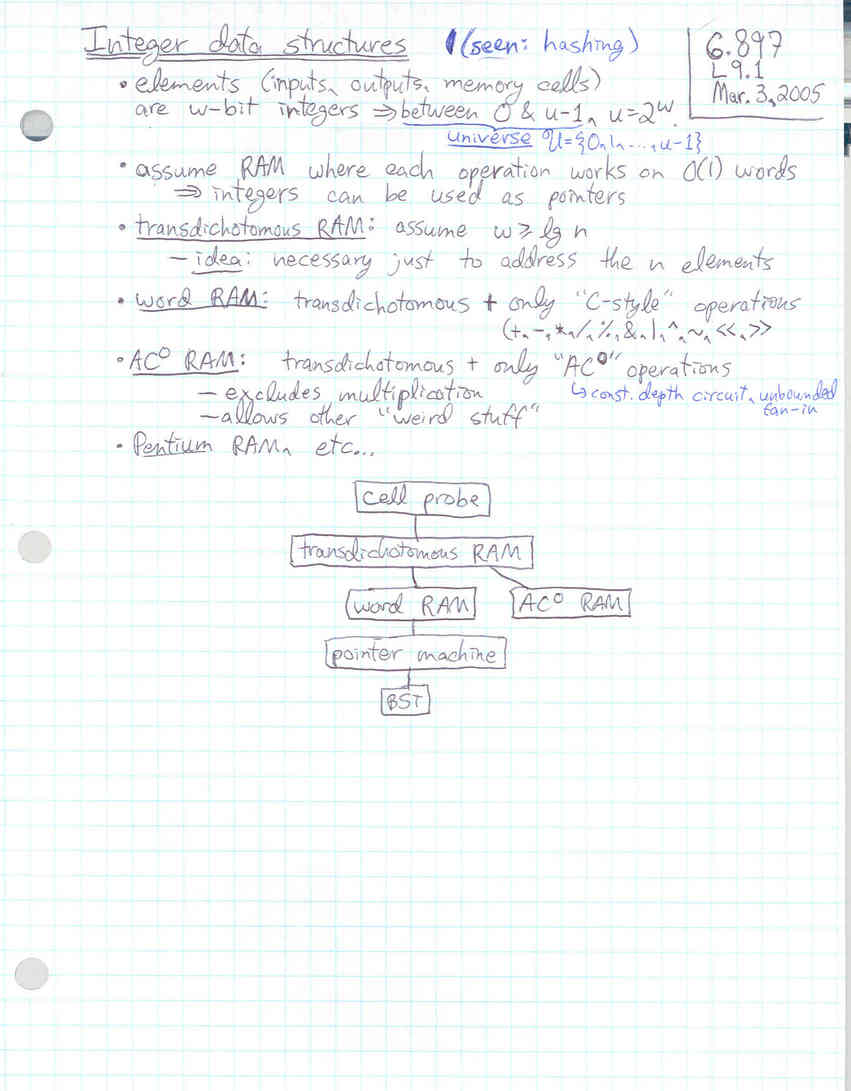 Integer data structures (seen: hashing)
6.897
L9.1
Mar. 3, 2005
• elements (inputs, outputs, memory cells)
are w-bit integers ⇒ between 0 & u-1, u=2^w
universe U={0,1,...,u-1}
• assume RAM where each operation works on O(1) words
⇒ integers can be used as pointers
• transdichotomous RAM: assume w ≥ lg n
— idea: necessary just to address the n elements
• word RAM: transdichotomous + only "C-style" operations
(+,-,*,/,%,&,|,^,~,<<,>>
• AC⁰ RAM: transdichotomous + only "AC⁰" operations
— excludes multiplication
↳ const. depth circuit, unbounded
fan-in
— allows other "weird stuff"
• Pentium RAM, etc...
cell probe
transdichotomous RAM
word RAM AC⁰ RAM
pointer machine
BST